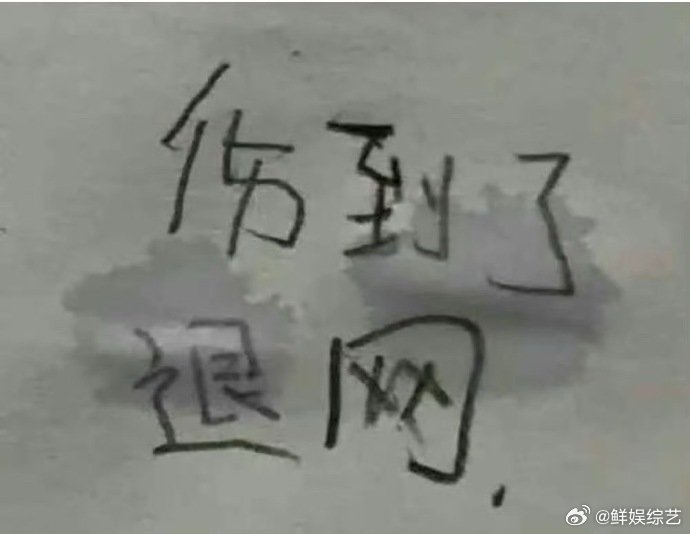 伤到了
退网.
@鲜娱综艺